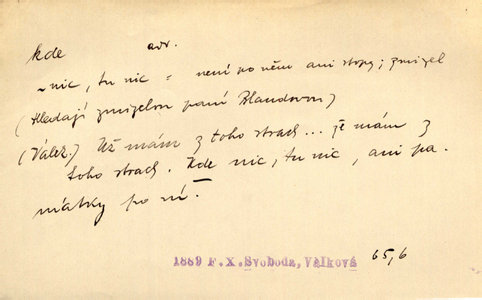 kde adv.
~ nic, tu nic = není po něm ani stopy; zmizel
(Hledají zmizelou paní Blandovou)
(Válek.) Už mám z toho strach... já mám z
toho strach. Kde nic, tu nic, ani pa-
mátky po ní.
1889 F.X.Svoboda, Válková 65,6